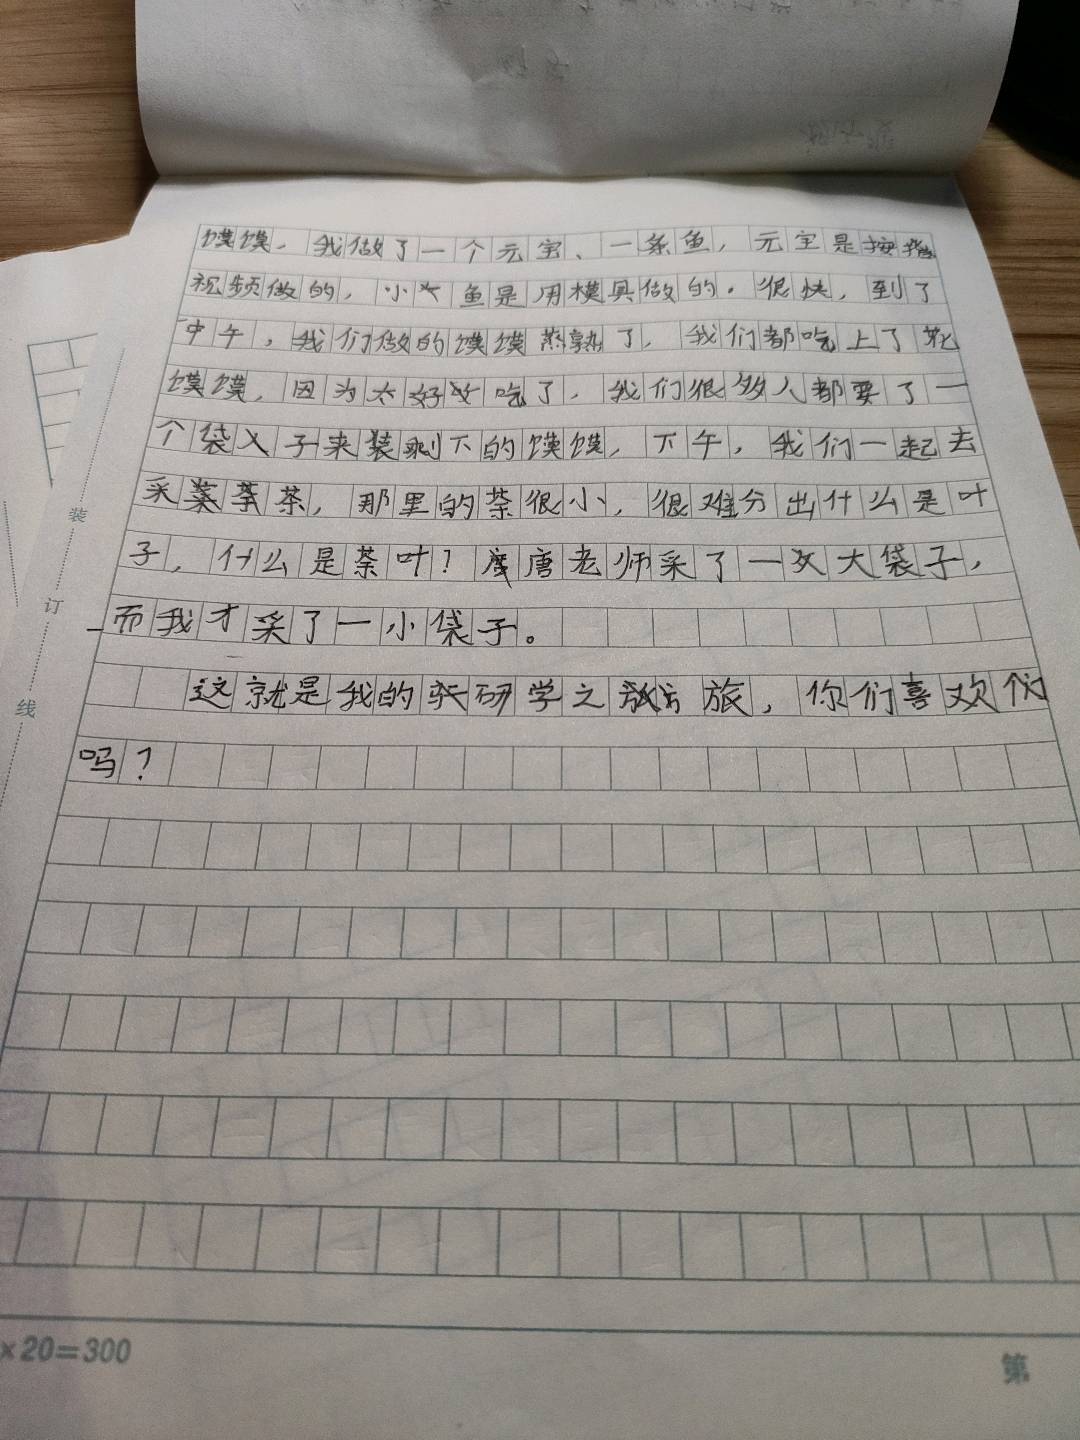 馍馍，我做了一个元宝、一条鱼，元宝是按
视频做的，小鱼是用模具做的。很快，到了
中午，我们做的馍馍蒸熟了，我们都吃上了花
馍馍，因为太好吃了，我们很多人都要了一
个袋子来装剩下的馍馍，下午，我们一起去
采茶，那里的茶很小，很难分出什么是叶
子，什么是茶叶？唐老师采了一大袋子，
而我才采了一小袋子。
这就是我的研学之旅，你们喜欢
吗？
装
订
线
×20=300
第